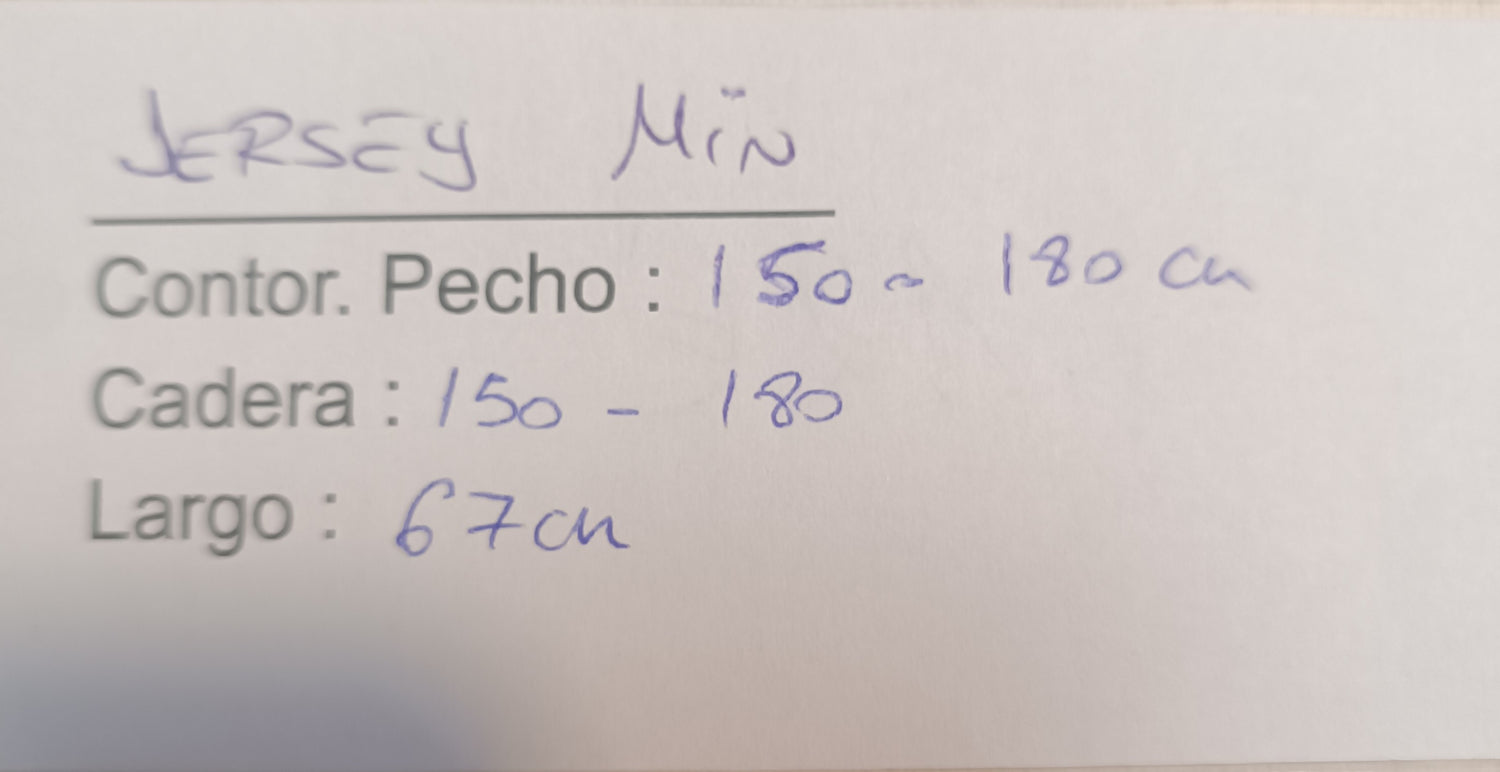 JERSEY Mïn
Contor. Pecho : 150 - 180 cm
Cadera : 150 - 180
Largo : 67cm